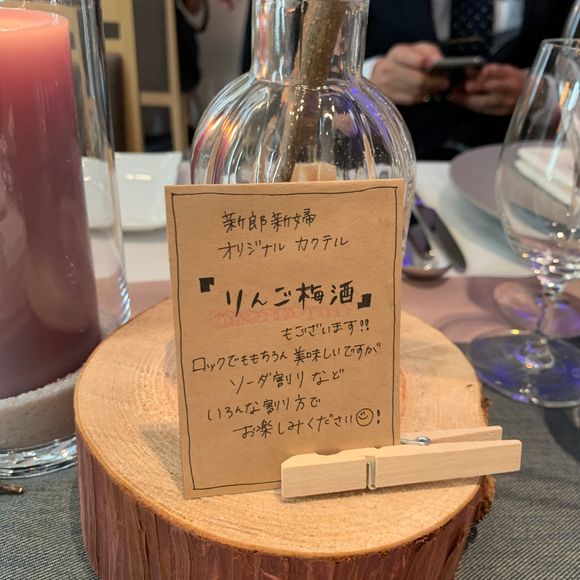 新郎新婦
オリジナル カクテル
『りんご梅酒』
もございます!!
ロックでももちろん美味しいですが
ソーダ割りなど
いろんな割り方で
お楽しみください☺!